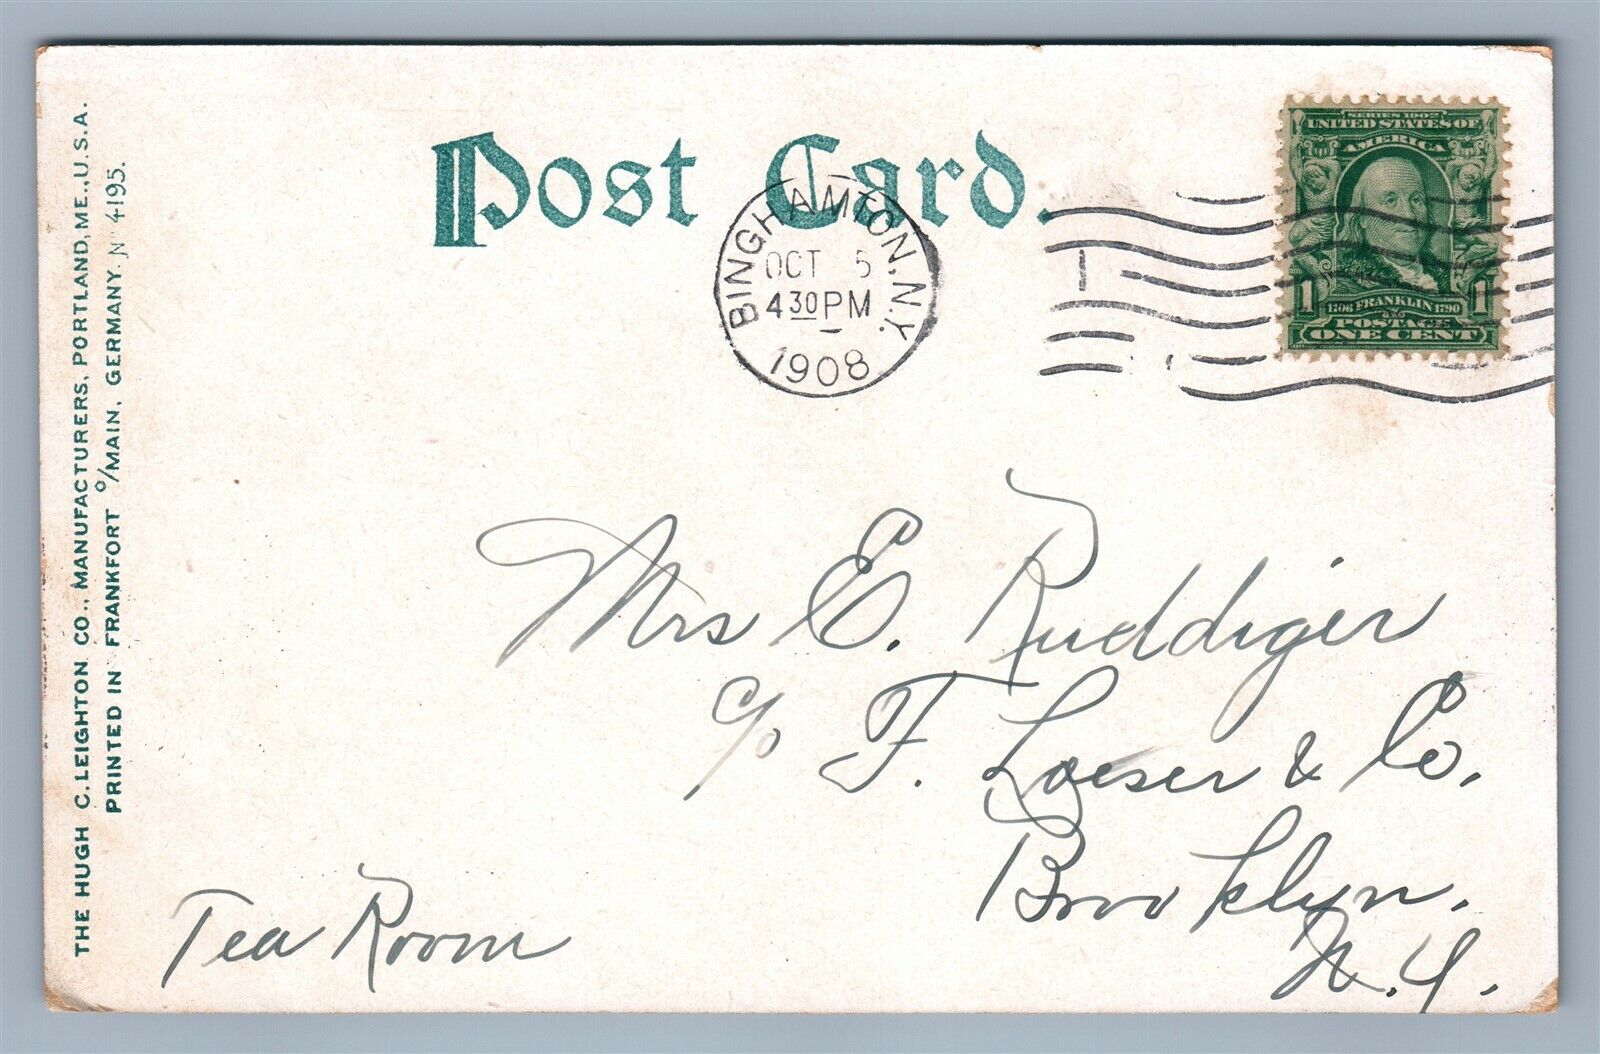 Post Card.
BINGHAMTON, N.Y.
OCT 5
4 30 PM
1908
1
SERIES 1902
UNITED STATES OF
AMERICA
1 1
1706 FRANKLIN 1790
POSTAGE
ONE CENT
Mrs E. Ruddiger
c/o F. Loeser & Co.
Brooklyn.
N.Y.
Tea Room
THE HUGH C. LEIGHTON CO., MANUFACTURERS, PORTLAND, ME., U.S.A.
PRINTED IN FRANKFORT o/MAIN, GERMANY. No 4195.